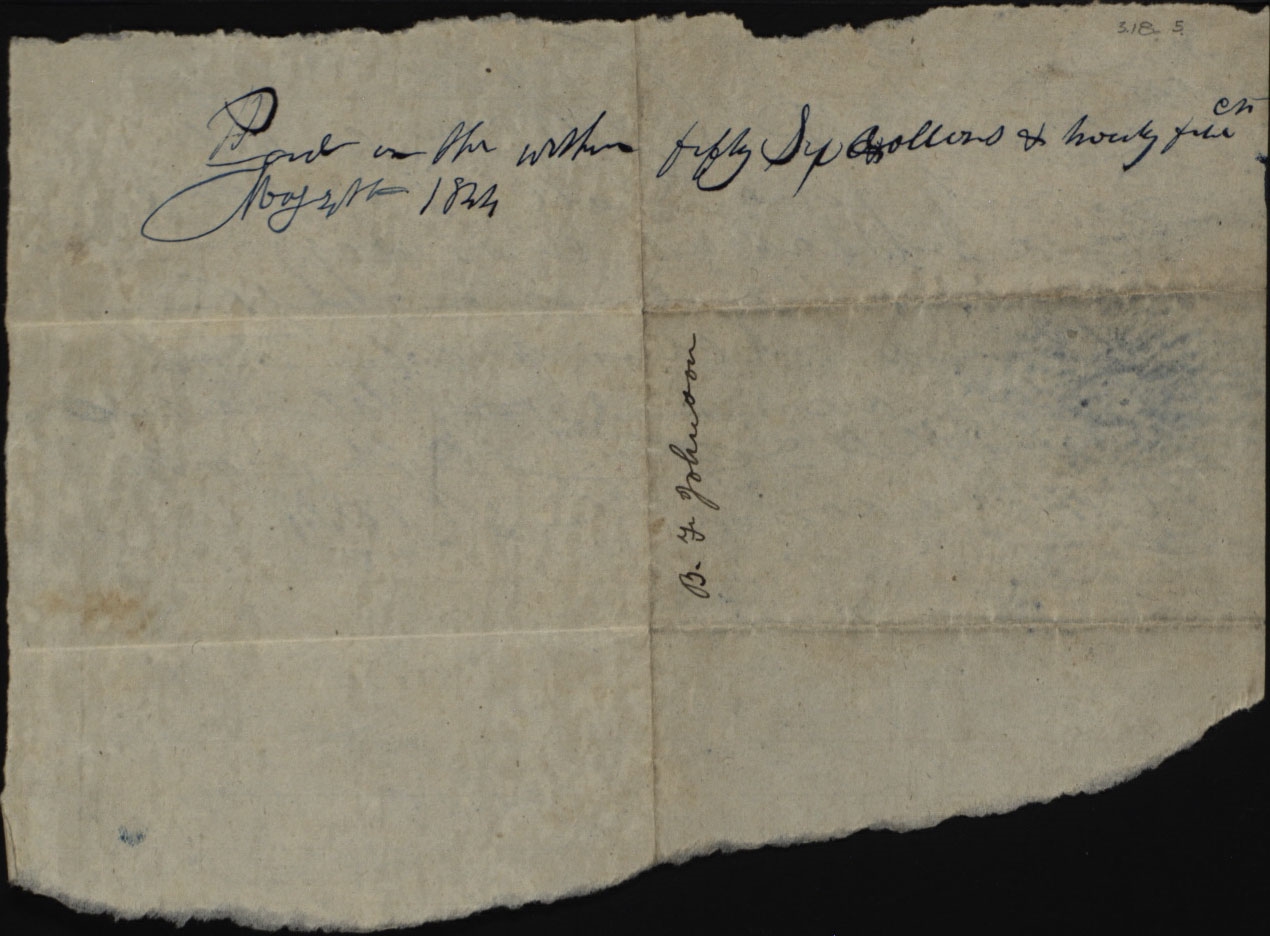 318 5
Paid on the within fifty Six dollars & twenty five cts
May 1844
B. F. Johnson